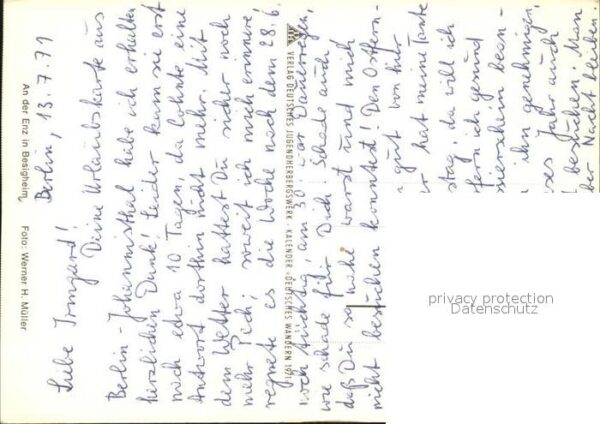 Berlin, 13.7.71
Liebe Irmgard!
Deine Urlaubskarte aus
Berlin-Johannisthal habe ich erhalten
herzlichen Dank! Leider kam sie erst
nach etwa 10 Tagen, da lohnte eine
Antwort dorthin nicht mehr. Mit
dem Wetter hattest Du sicher noch
mehr Pech; soweit ich mich erinnere
regnete es die Woche nach dem 28.6.
noch tüchtig, am 30. war Dauerregen,
wie schade für Dich! Schade auch
daß Du so nahe warst und mich
nicht besuchen konntest! Den
gut von hier
hat meine Tante
da will ich
ich gesund
ihn genehmigen,
Jahr auch
besuchen. Man
der Nacht bleiben.
An der Enz in Besigheim
Foto: Werner H. Müller
VERLAG DEUTSCHES JUGENDHERBERGSWERK · KALENDER »DEUTSCHES WANDERN 1971«
privacy protection
Datenschutz